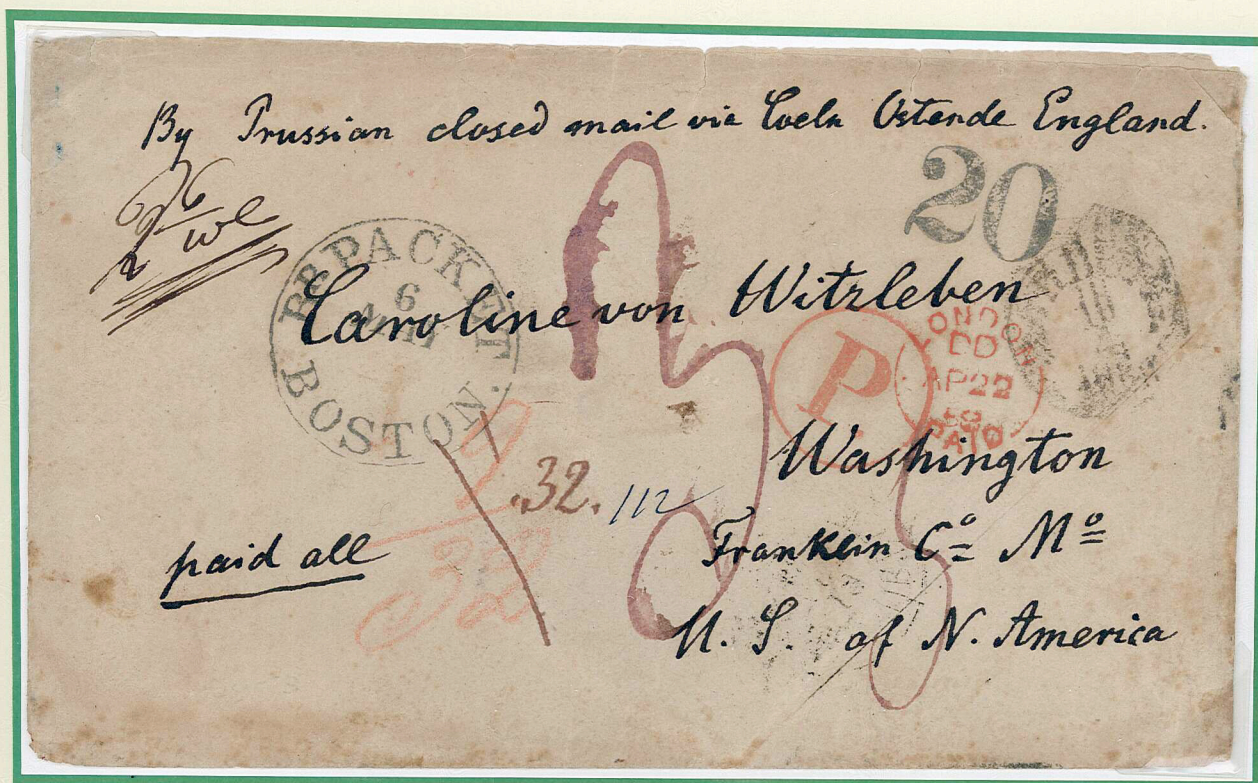 By Prussian closed mail via Coeln Ostende England.
20
BR PACKET
6
BOSTON.
Caroline von Witzleben
P
LONDON
DD
AP 22
PAID
Washington
.32. /12
paid all
Franklin Cº Mº
U. S. of N. America